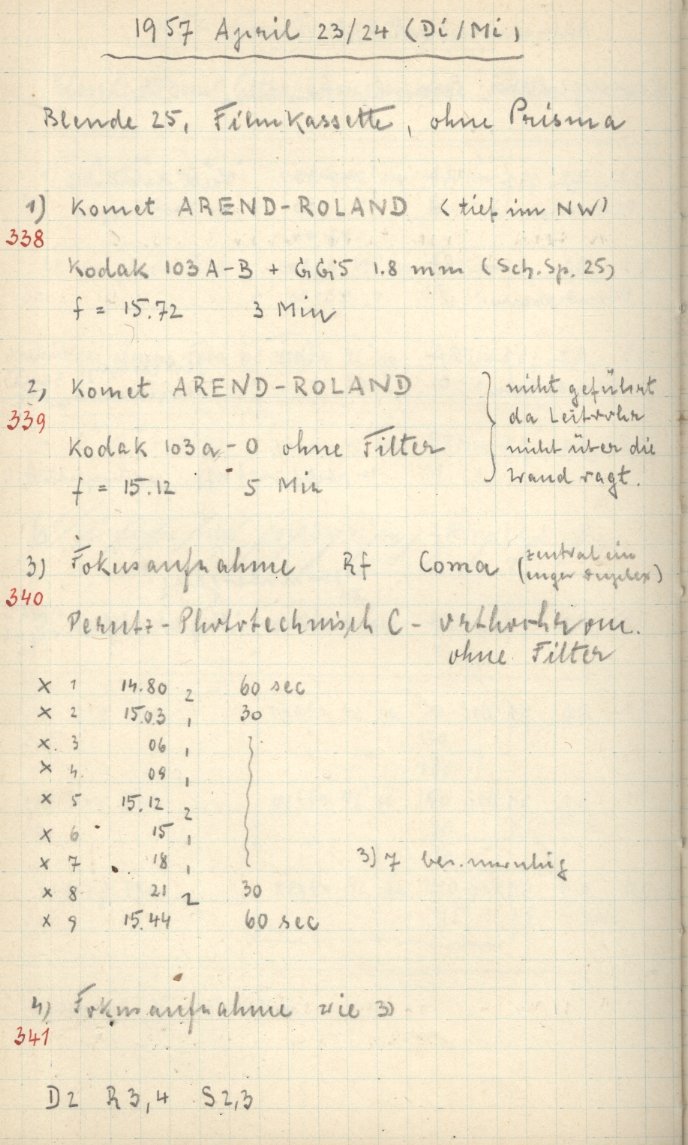 1957 April 23/24 (Di/Mi)
Blende 25, Filmkassette, ohne Prisma
1) Komet AREND-ROLAND (tief im NW)
338
Kodak 103 A-B + GG5 1.8 mm (Sch.Sp. 25)
f = 15.72 3 Min
2) Komet AREND-ROLAND
339
Kodak 103a-O ohne Filter
f = 15.12 5 Min
nicht geführt
da Leitrohr
nicht über die
Wand ragt.
3) Fokusaufnahme Rf Coma (zentral ein
enger)
340
Perutz-Phototechnisch C - orthochrom.
ohne Filter
x 1 14.80 2 60 sec
x 2 15.03 1 30
x 3 06 1
x 4 09 1
x 5 15.12 2
x 6 15 1
x 7 18 1 3) 7 bes. unruhig
x 8 21 2 30
x 9 15.44 60 sec
4) Fokusaufnahme wie 3)
341
D2 R3,4 S2,3